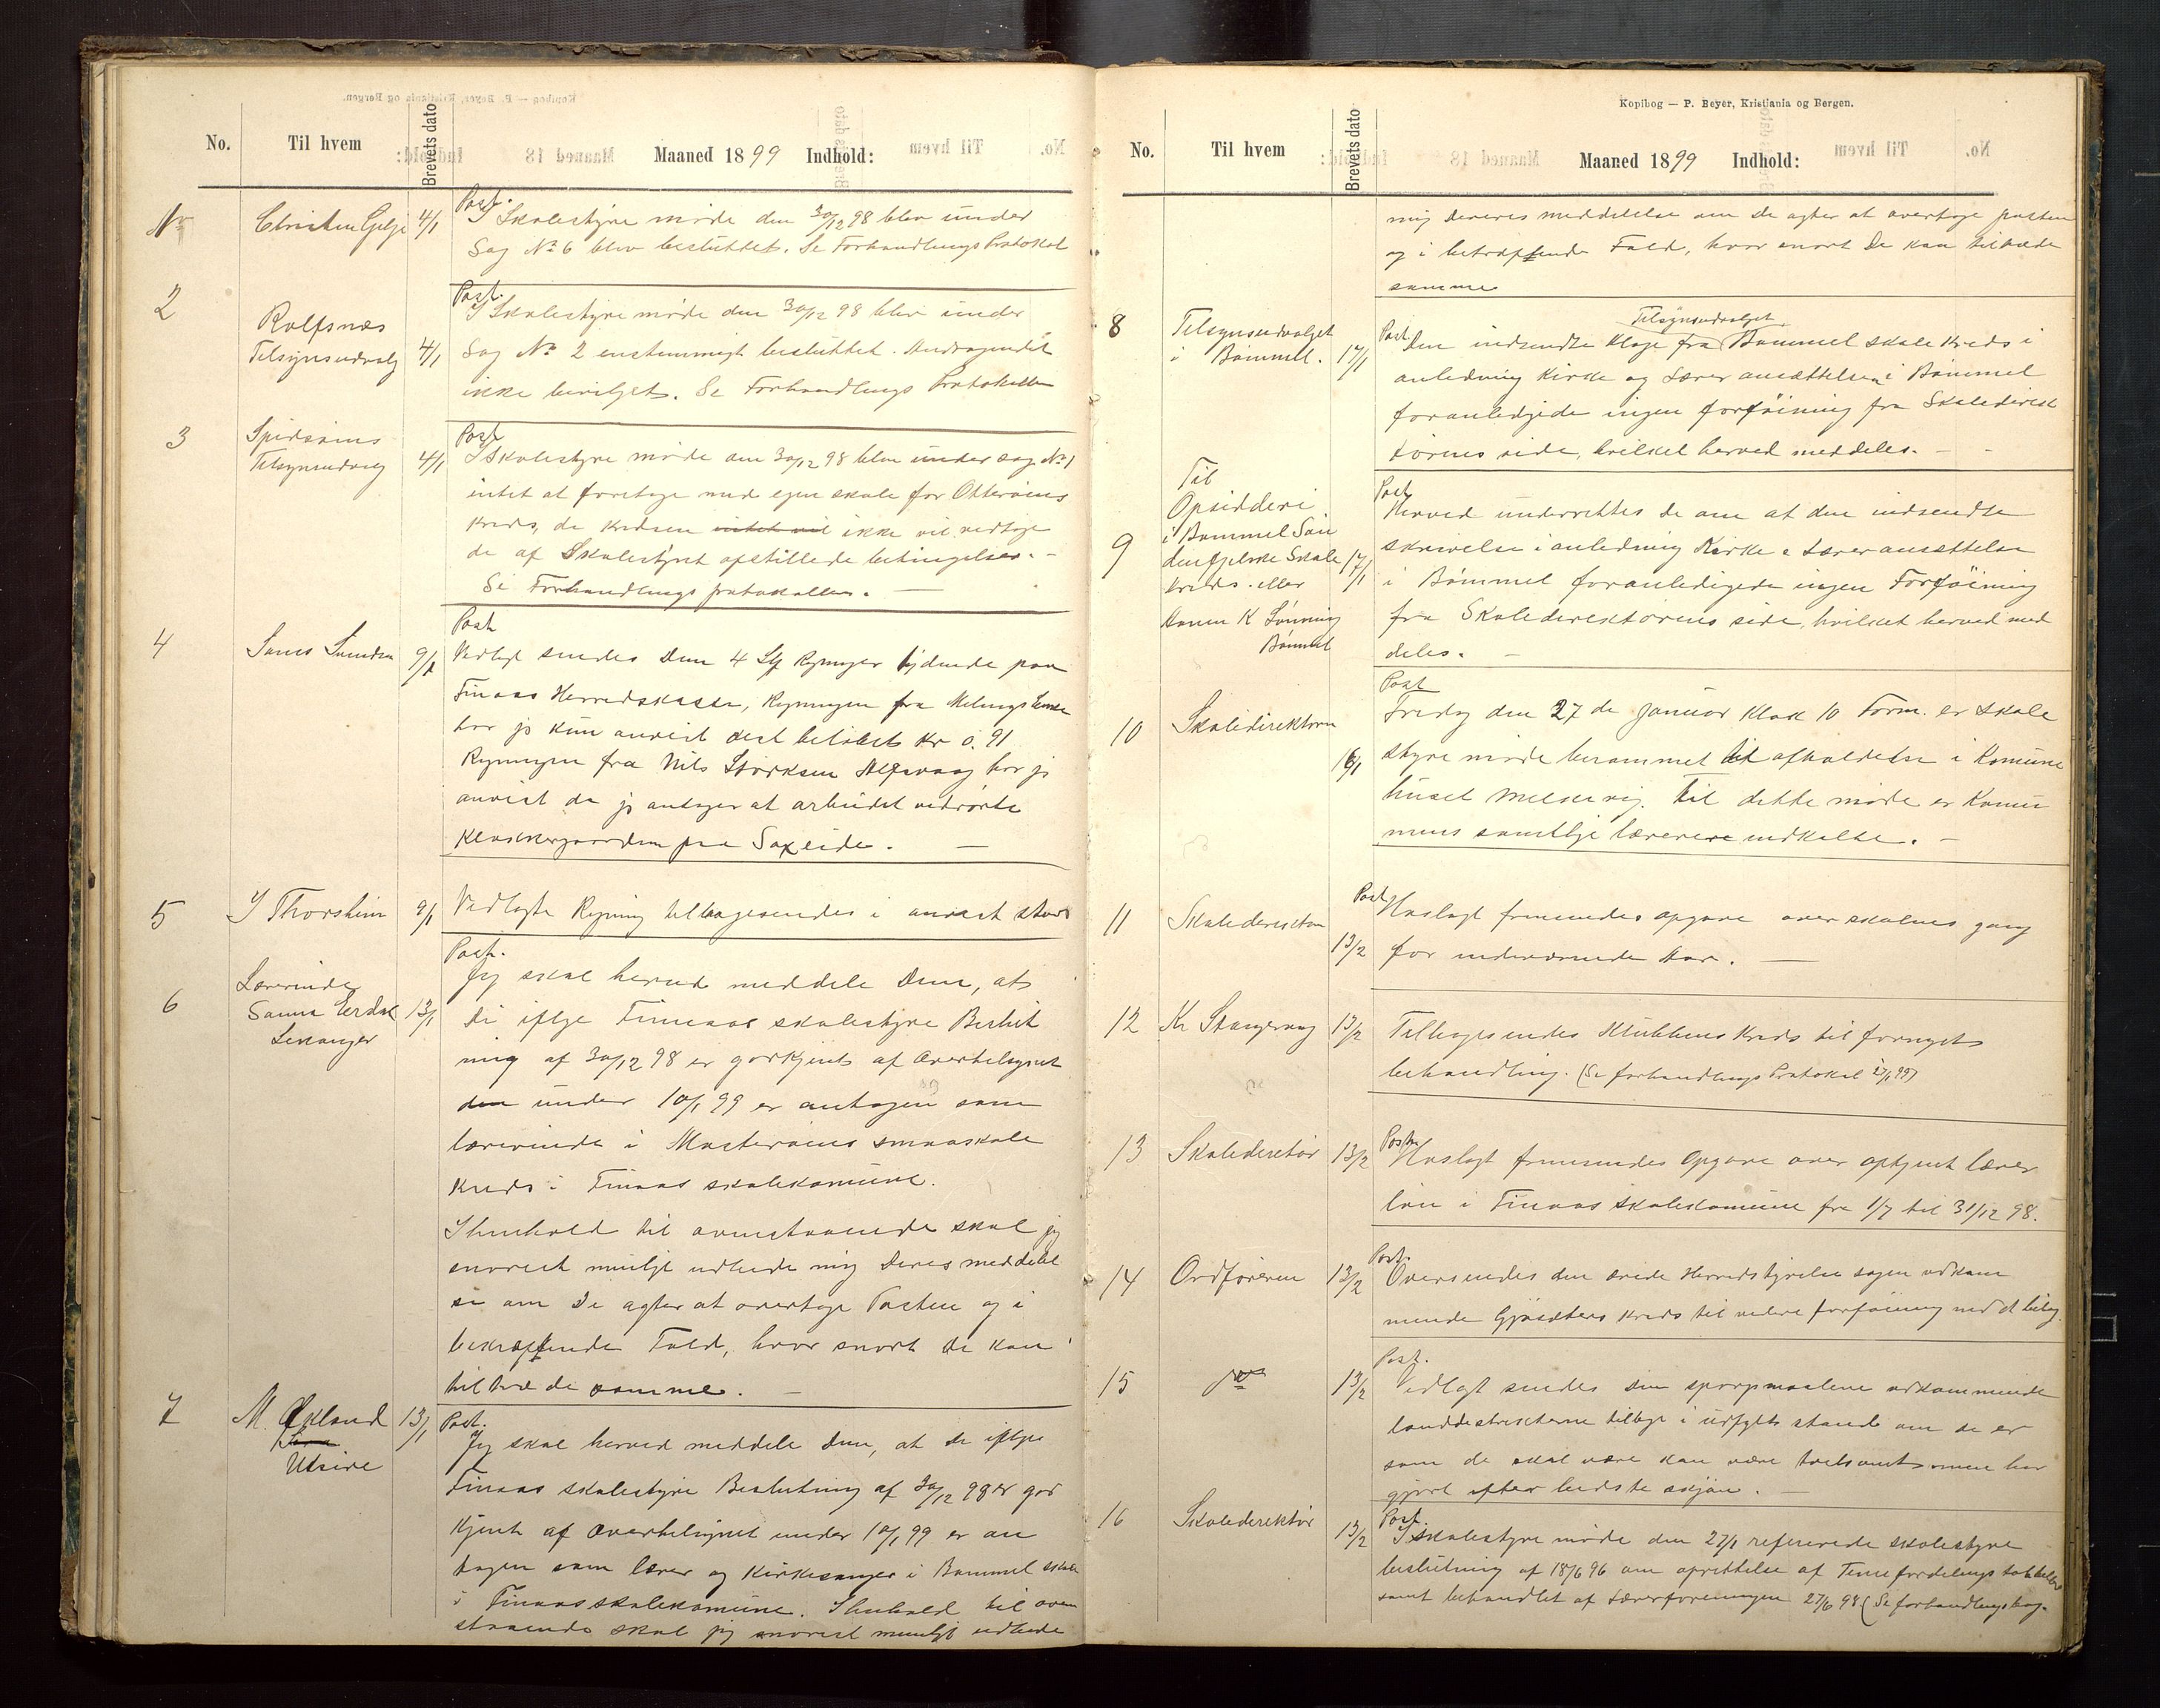 No. Til hvem Brevets dato Maaned 1899 Indhold:
Post.
Nr Christen Gjelje 4/1 I Skolestyre møde den 30/12 98 blev under
Sag No 6 blev besluttet. Se Forhandlings Protokol
2 Post.
I Skolestyre møde den 30/12 98 blev under
Rolfsnæs
Tilsynsudvalg 4/1 Sag No 2 enstemmigt besluttet. Andragendet
ikke bevilget. Se Forhandlings Protokollen
3 Spidsøens Post
Tilsynsudvalg 4/1 I Skolestyre møde den 30/12 98 blev under sag No 1
intet at foretage med egen skole for Otterøens
Kreds, da Kredsen intet vil ikke vil vedtage
de af Skolestyret opstillede betingelser. -
Se Forhandlings protokollen. -
Post
4 9/1 Vedlagt sendes Dem 4 Regninger lydende paa
Finaas Herredskasse, Regningen fra
har jeg kun anvist det beløbet Kr 0.91
Regningen fra Nils Størksen Alfsvaag har jeg
anvist da jeg antager at arbeidet vedrørte
Klokkergaarden paa Saxeide. -
5 I Thorsheim 9/1 Vedlagte Regning tilbagesendes i anvist stand
Post.
Lærerinde Jeg skal herved meddele Dem, at
6 Sanna 13/1 De ifølge Finaas skolestyre Beslut
Leranger
ning af 30/12 98 er godkjent af Overtilsynet
den under 10/1 99 er antagen som
lærerinde i Mosterøens smaaskole
Kreds i Finaas skolekomune.
I henhold til ovenstaaende skal jeg
snarest muligt udbede mig Deres meddelel
se om De agter at overtage Posten og i
bekræftende Fald, hvor snart De kan
tiltræde samme. -
7 M. Økland 13/1 Post.
Jeg skal herved meddele Dem, at De ifølge
Utsire
Finaas skolestyre Beslutning af 30/12 98 er god
kjent af Overtilsynet under 10/1 99 er an
tagen som lærer og Kirkesanger i Bømmel skole
i Finaas skolekomune. I henhold til oven
staaende skal jeg snarest muligt udbede
Kopibog — P. Beyer, Kristiania og Bergen.
No. Til hvem Brevets dato Maaned 1899 Indhold:
mig Deres meddelelse om De agter at overtage posten
og i bekræftende Fald, hvor snart De kan tiltræde
samme
Tilsynsudvalget
8 Tilsynsudvalget Post Den indsendte Klage fra Bømmel skole Kreds i
i Bømmel. 17/1
anledning Kirke og Lærer ansættelsen i Bømmel
foranledigede ingen forføining fra Skoledirek
tørens side, hvilket herved meddeles. - -
Til
Opsidderi Post
i Bømmel Søn Herved underrettes De om at den indsendte
9 denfjelske Skole 17/1 skrivelse i anledning Kirke & Lærer ansættelse
Kreds. eller i Bømmel foranledigede ingen Forføining
K Lønning fra Skoledirektørens side, hvilket herved med
Bømmel deles. -
Post
10 Skoledirektøren Fredag den 27de Januar Klok 10 Form. er Skole
16/1 styre møde berammet til afholdelse i Komune
huset Melkevig. Til dette møde er Komu
nens samtlige lærerere indkalte. -
11 Skoledirektøren Post Indlagt fremsendes opgave over skolens gang
13/2 for indeværende Aar. -
12 Kr Stangervaag 13/2 Tilbagesendes Klubbens Kreds til fornyet
behandling. (Se forhandlings Protokol 27/1 99)
13 Skoledirektør 13/2 Post Indlagt fremsendes Opgave over optjent lærer
løn i Finaas skolekomune fra 1/7 til 31/12 98.
14 Ordføreren 13/2 Post.
Oversendes den ærede Herredstyrelse sagen vedkom
mende Gjøsæters Kreds til videre forføining med bilag
15 Do 13/2 Post.
Vedlagt sendes spørgsmaalene vedkommende
landdistrikterne tilbage i udfyldt stand om de er
som de skal være kan være tvilsomt men har
gjort efter bedste skjøn. -
16 Skoledirektør 13/2 Post.
I skolestyre møde den 27/1 refererede skolestyre
beslutning af 18/6 96 om oprettelse af Timefordelings tabeller
samt behandlet af Lærerforeningen 27/6 98 (Se forhandlingsbog.